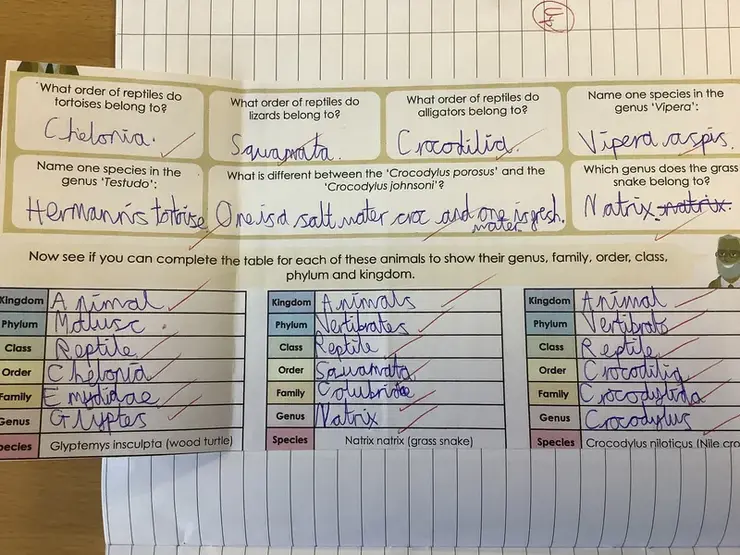 What order of reptiles do
tortoises belong to?
Chelonia.
What order of reptiles do
lizards belong to?
Squamata.
What order of reptiles do
alligators belong to?
Crocodilia.
Name one species in the
genus 'Vipera':
Vipera aspis.
Name one species in the
genus 'Testudo':
Hermann's tortoise
What is different between the 'Crocodylus porosus' and the
'Crocodylus johnsoni'?
One is a salt water croc and one is fresh.
water
Which genus does the grass
snake belong to?
Natrix natrix.
Now see if you can complete the table for each of these animals to show their genus, family, order, class,
phylum and kingdom.
Kingdom Animal
Phylum Molusc
Class Reptile
Order Chelonia
Family Emydidae
Genus Glyptes
Species Glyptemys insculpta (wood turtle)
Kingdom Animals
Phylum Vertibrates
Class Reptile
Order Squamata
Family Colubridae
Genus Natrix
Species Natrix natrix (grass snake)
Kingdom Animal
Phylum Vertibrate
Class Reptile
Order Crocodilia
Family Crocodylida
Genus Crocodylus
Species Crocodylus niloticus (Nile cro